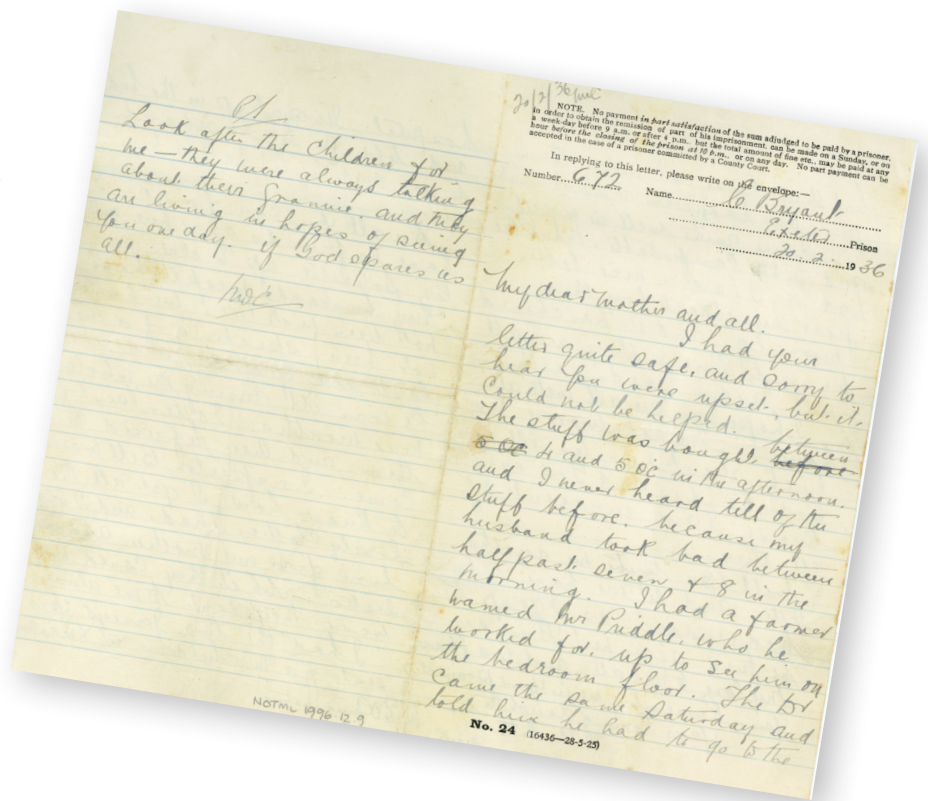 PS
Look after the Children for
me — they were always talking
about their Grannie. and they
are living in hopes of seeing
you one day. if God spares us
all.
NOTML 1996.12.9
20/2/36
NOTE. No payment in part satisfaction of the sum adjudged to be paid by a prisoner,
in order to obtain the remission of part of his imprisonment, can be made on a Sunday, or on
a week-day before 9 a.m. or after 4 p.m., but the total amount of fine etc., may be paid at any
hour before the closing of the prison at 10 p.m., or on any day. No part payment can be
accepted in the case of a prisoner committed by a County Court.
In replying to this letter, please write on the envelope:—
Number 672 Name C Bryant
Exeter Prison
20.2. 1936
My dear Mother and all.
I had your
letter quite safe, and sorry to
hear you were upset, but it.
Could not be helped. between
The stuff was bought, before
5 OC 4 and 5 OC in the afternoon.
and I never heard tell of the
stuff before. because my
husband took bad between
half past seven & 8 in the
morning. I had a farmer
named Mr Priddle, who he
worked for. up to see him on
the bedroom floor. The Dr
came the same Saturday and
told him he had to go to the
No. 24 (16436—28-5-25)